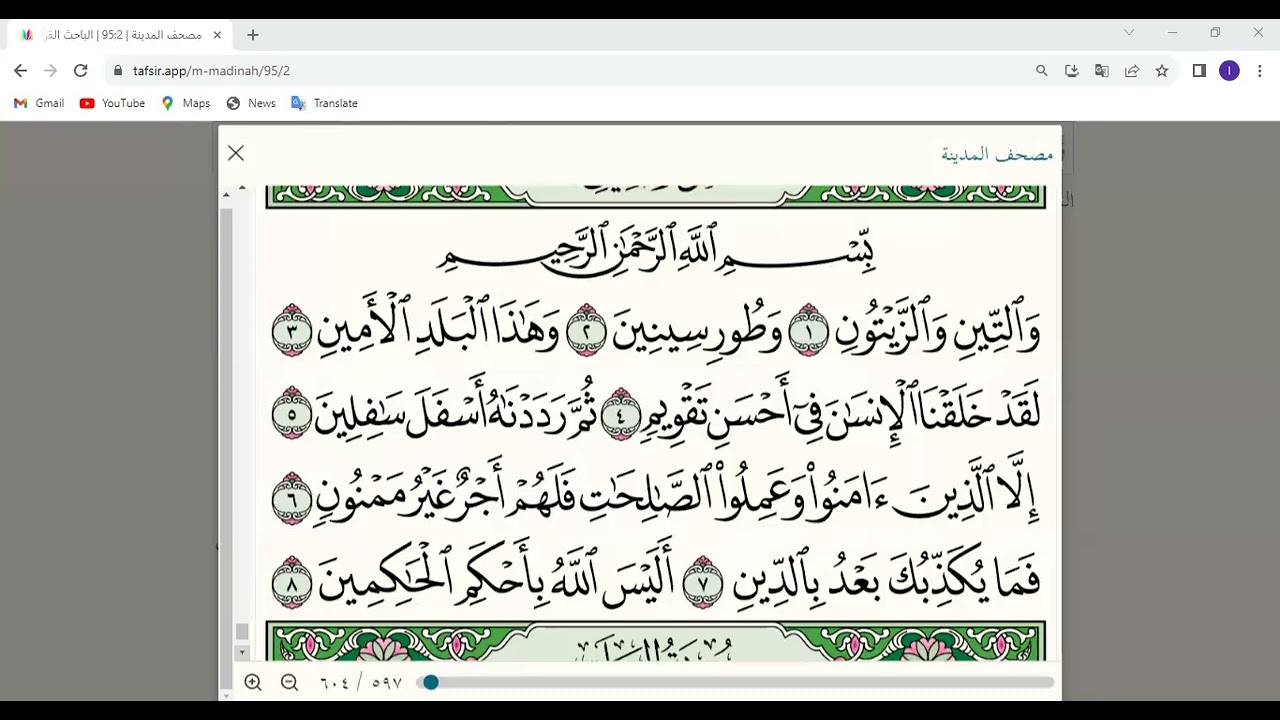 مصحف المدينة | 95:2 | الباحث القر
tafsir.app/m-madinah/95/2
Gmail YouTube Maps News Translate
I
مصحف المدينة
بِّسۡمِ ٱللَّهِ ٱلرَّحۡمَٰنِ ٱلرَّحِيمِ
وَٱلتِّينِ وَٱلزَّيۡتُونِ ١ وَطُورِ سِينِينَ ٢ وَهَٰذَا ٱلۡبَلَدِ ٱلۡأَمِينِ ٣
لَقَدۡ خَلَقۡنَا ٱلۡإِنسَٰنَ فِيٓ أَحۡسَنِ تَقۡوِيمٖ ٤ ثُمَّ رَدَدۡنَٰهُ أَسۡفَلَ سَٰفِلِينَ ٥
إِلَّا ٱلَّذِينَ ءَامَنُواْ وَعَمِلُواْ ٱلصَّٰلِحَٰتِ فَلَهُمۡ أَجۡرٌ غَيۡرُ مَمۡنُونٖ ٦
فَمَا يُكَذِّبُكَ بَعۡدُ بِٱلدِّينِ ٧ أَلَيۡسَ ٱللَّهُ بِأَحۡكَمِ ٱلۡحَٰكِمِينَ ٨
٥٩٧ / ٦٠٤